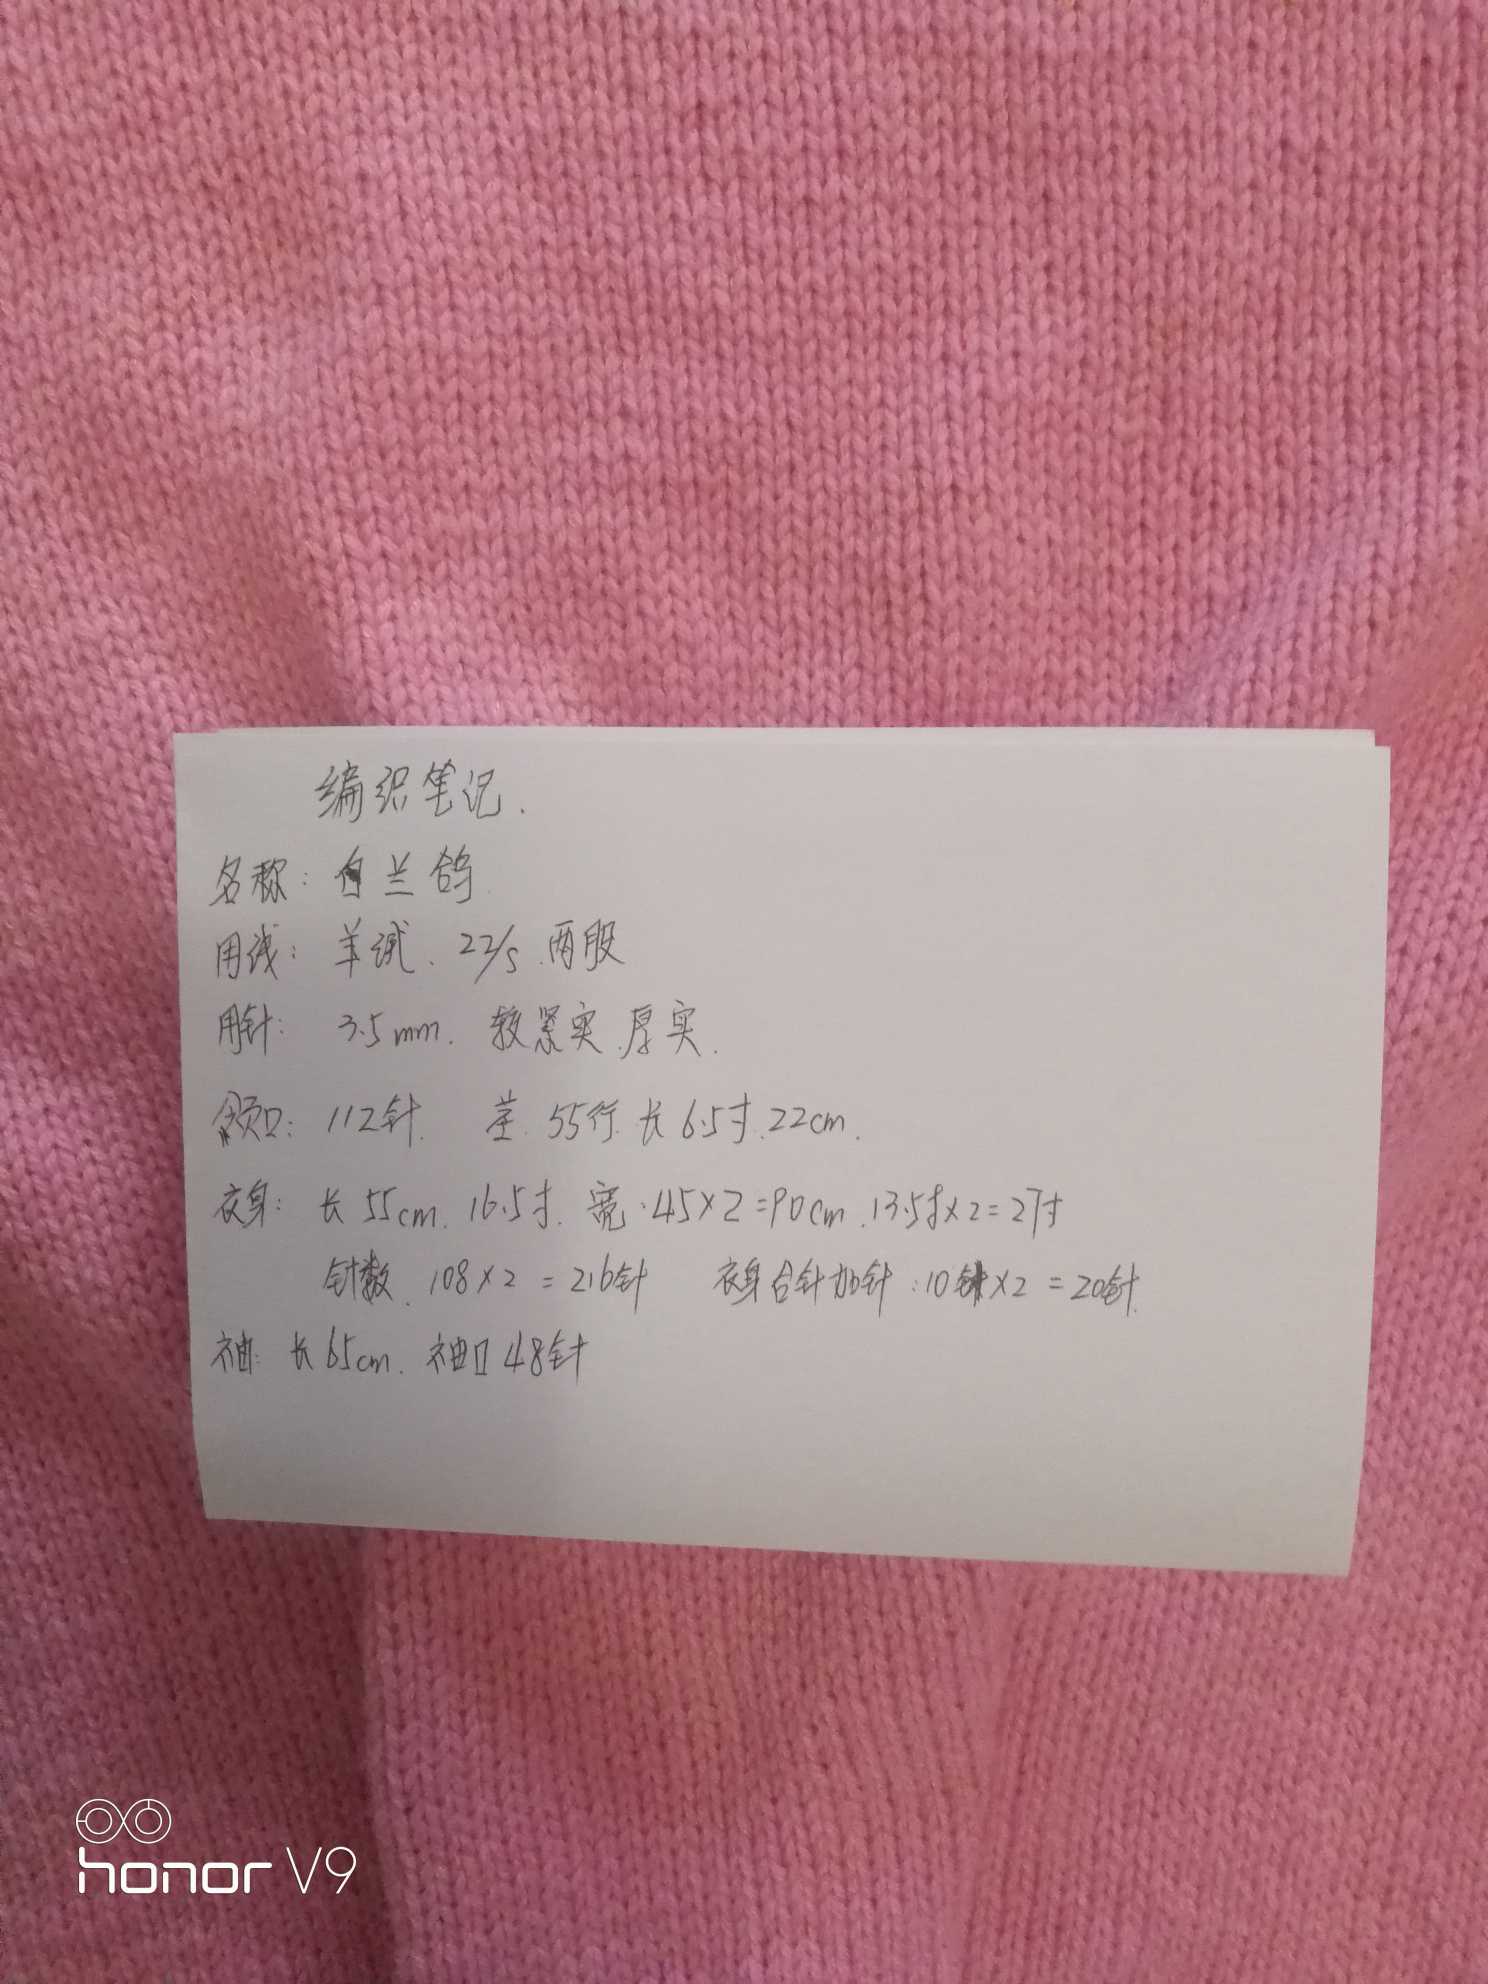 编织笔记.
名称: 白兰鸽
用线: 羊绒、22/s.两股
用针: 3.5mm. 较紧实.厚实.
领口: 112针. 差.55行.长6.5寸.22cm.
衣身: 长55cm. 16.5寸. 宽.45×2=90cm.13.5寸×2=27寸
针数.108×2=216针 衣身合针加针:10针×2=20针.
袖: 长65cm. 袖口48针
honor V9